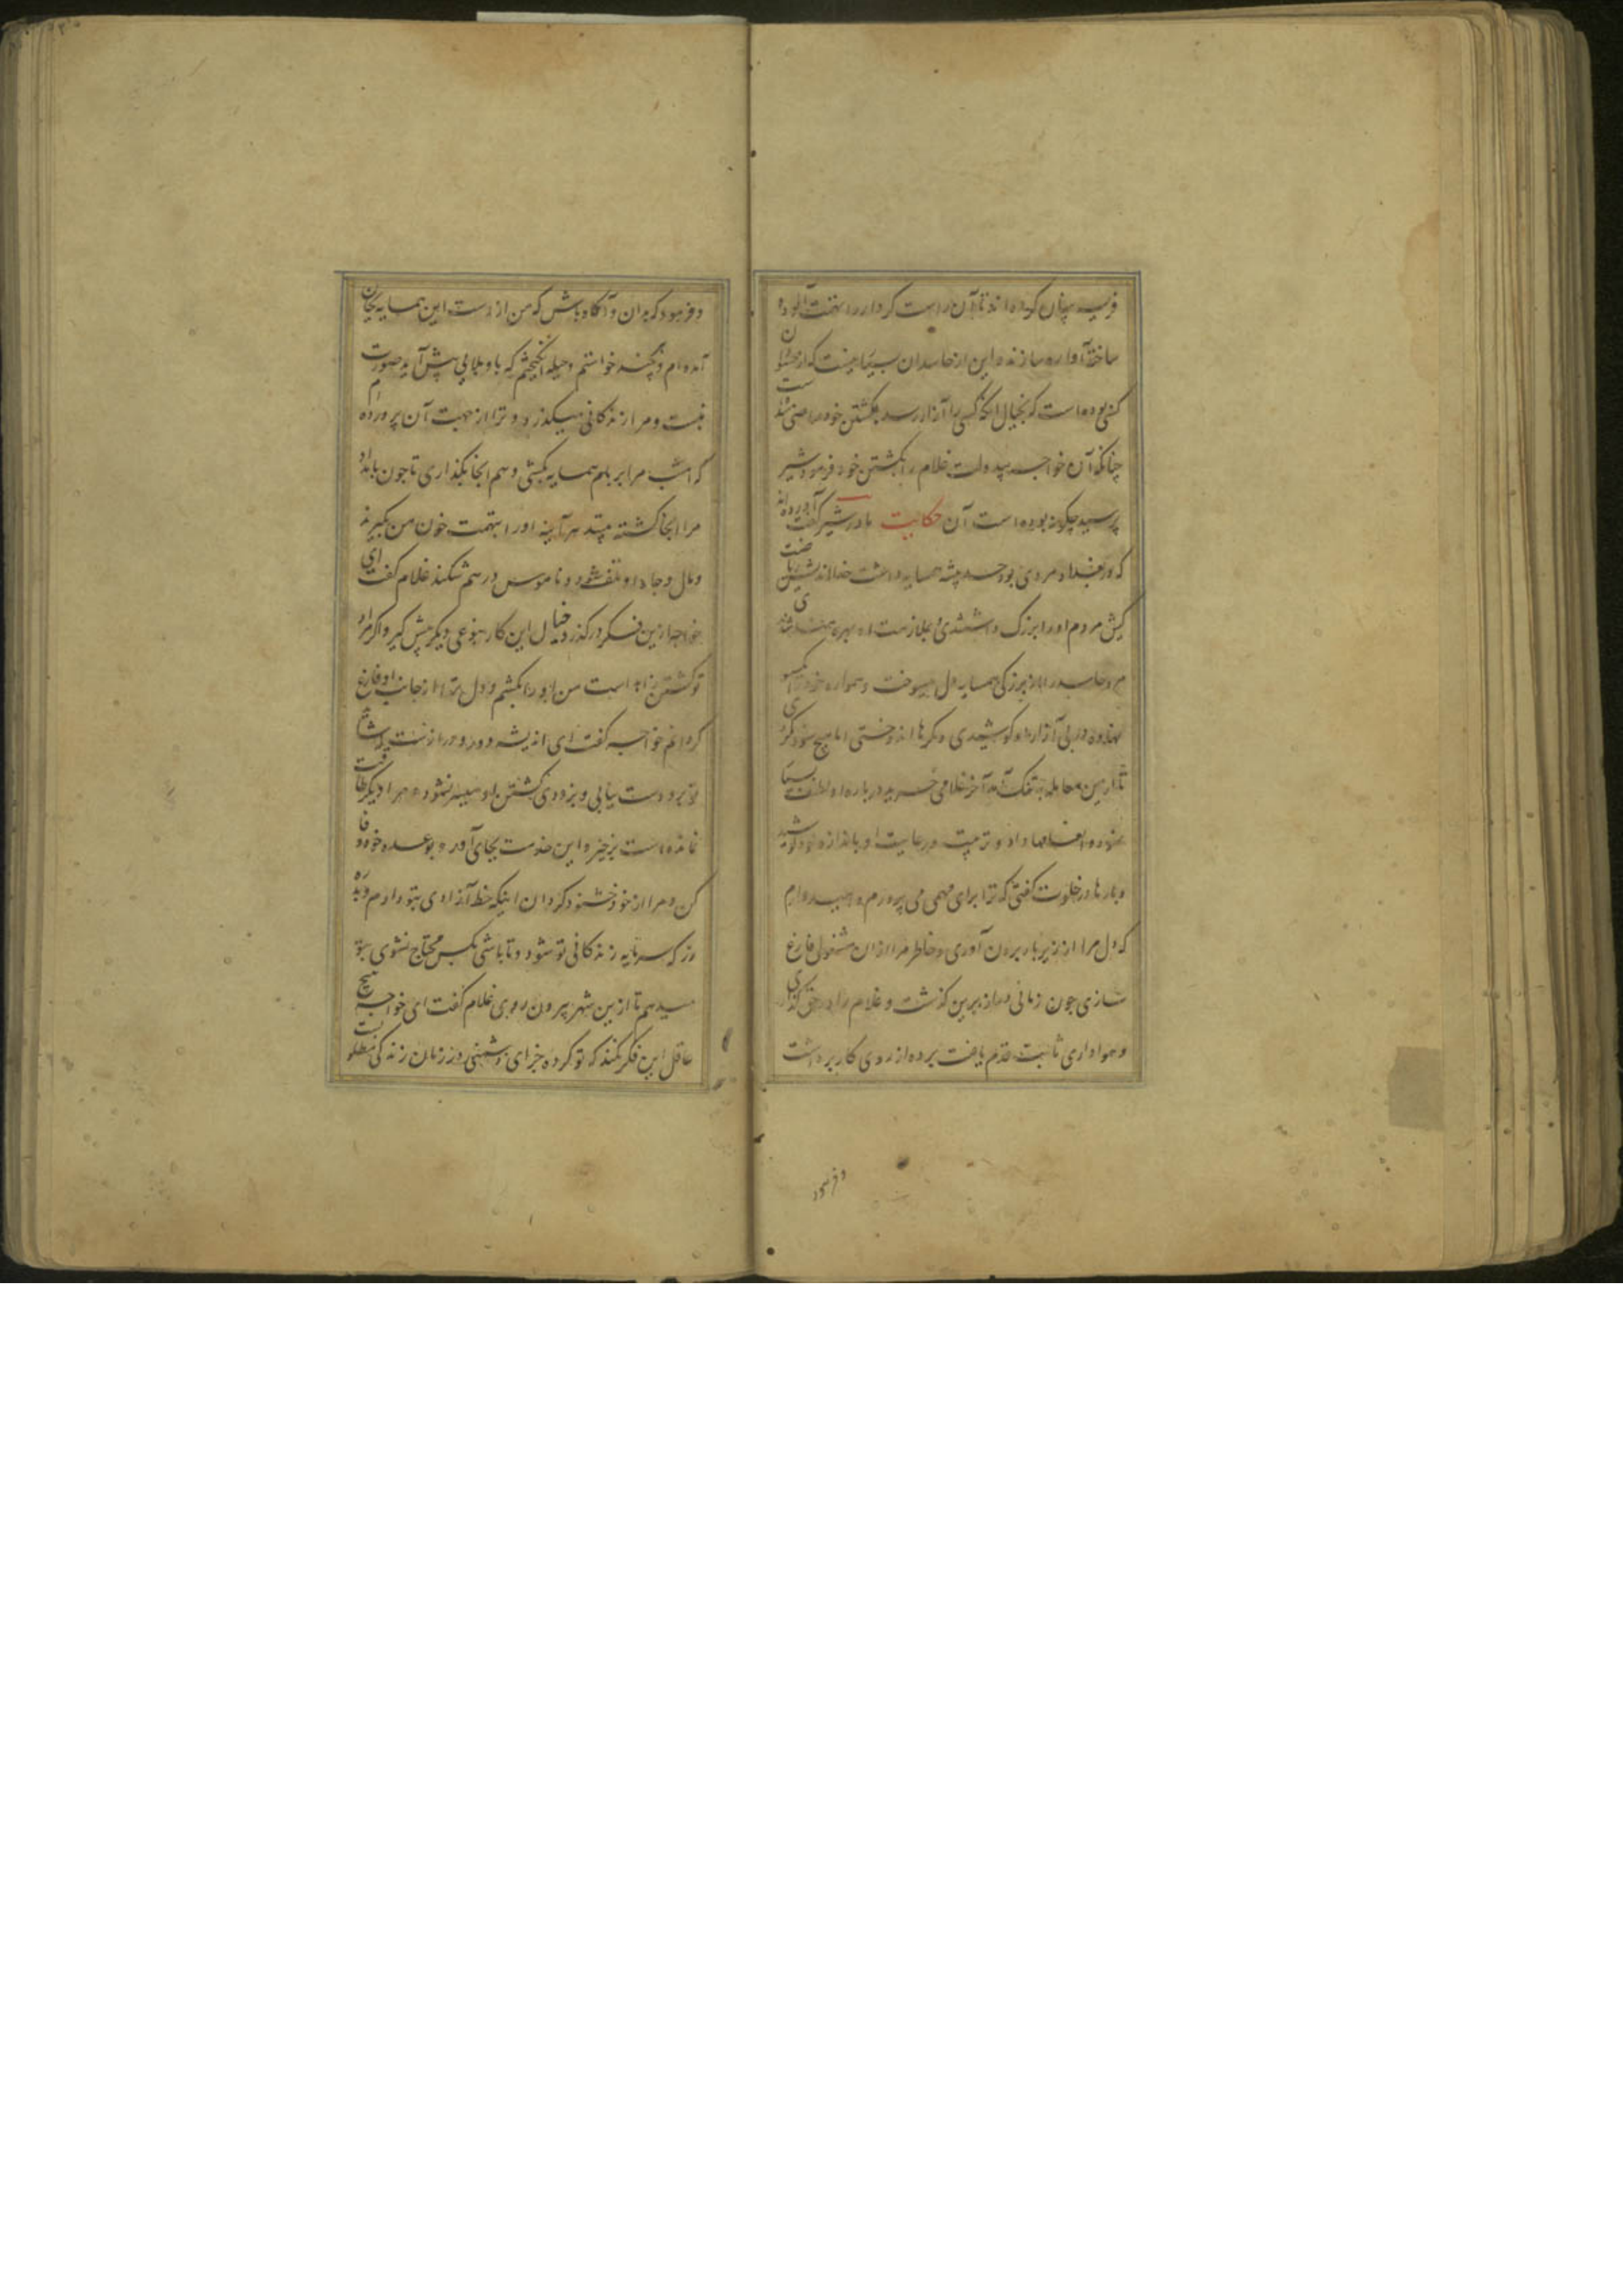 فریب پنهان کرده اند تا آن راست کردار را تهمت آلوده
ساخته آواره سازند و این از حاسدان بسیار نیست که از حسودان
کسی بوده است که بخیال آنکه کسی را آزار رسد بکشتن خود راضی شده است
چنانکه آن خواجه بیدولت غلام را بکشتن خود فرمود شیر
پرسید چگونه بوده است آن حکایت مادر شیر گفت آورده اند
که در بغداد مردی بود حسد پیشه همسایه داشت خدا اندیش ریاضت
کیش مردم او را بزرگ داشتندی بملازمت او بهره مند شدندی
مرد حاسد را از بزرگی همسایه دل میسوخت و همواره خود را یکسو
نهاده در پی آزار او کوشیدی و مکرها اندوختی اما هیچ سود نکردی
تا ازین معامله بتنگ آمد آخر غلامی خرید در باره او لطف بسیار
نمود و انعامها داد و تربیت و رعایت او باندازه نمود کوشید
و بارها در خلوت گفتی که ترا برای مهمی می پرورم و امیدوارم
که دل مرا از زیر بار برون آوری و خاطر مرا ازان مشغولی فارغ
سازی چون زمانی دراز برین گذشت و غلام را در حق گذاری
و هواداری ثابت قدم یافت پرده از روی کار برداشت
و فرمود
و فرمود که بدان و آگاه باش که من از دست این همسایه بجان
آمده ام و هرچند خواستم و حیله انگیختم که باو بلایی پیش آید صورت
نبست و مرا زندگانی میگذرد و ترا از جهت آن پرورده ام
که امشب مرا بر بام همسایه بکشی و هم انجا بگذاری تا چون بامداد
مرا انجا کشته بینند هر آینه او را بتهمت خون من بگیرند
و مال و جاه او تلف شود و ناموس درهم شکند غلام گفت ای
خواجه ازین فکر درگذر و خیال این کار بنوعی دیگر پیش گیر و اگر مراد
تو کشتن زاهد است من او را بکشم و دل ترا از جانب او فارغ
گردانم خواجه گفت ای اندیشه دور و درازست شاید
تو برو دست نیابی و بزودی کشتن او میسر نشود و مرا دیگر طاقت
نمانده است برخیز و این خدمت بجای آور و بوعده خود وفا
کن و مرا از خود خشنود گردان اینک خط آزادی بتو دارم و بدره
زر که سرمایه زندگانی تو شود و تا باشی بکس محتاج نشوی بتو
میدهم تا ازین شهر بیرون روی غلام گفت ای خواجه هیچ
عاقل این فکر نکند که تو کرده جزای دشمنی در زمان زندگی مطلوبست